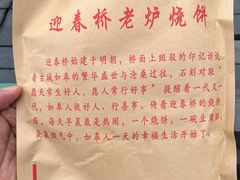 迎春桥老炉烧饼
迎春桥建于明朝，桥面上斑驳的印记诉说
着古城如皋的繁华盛世与沧桑过往，石刻对联“
愿天常生好人，愿人常行好事”提醒着一代又一
代，如皋人做好人、行善事。倚着迎春桥的烧饼
店，每天早晨最是热闹，一个烧饼，一碗豆腐脑，
气中，如皋人一天的幸福生活开始了。